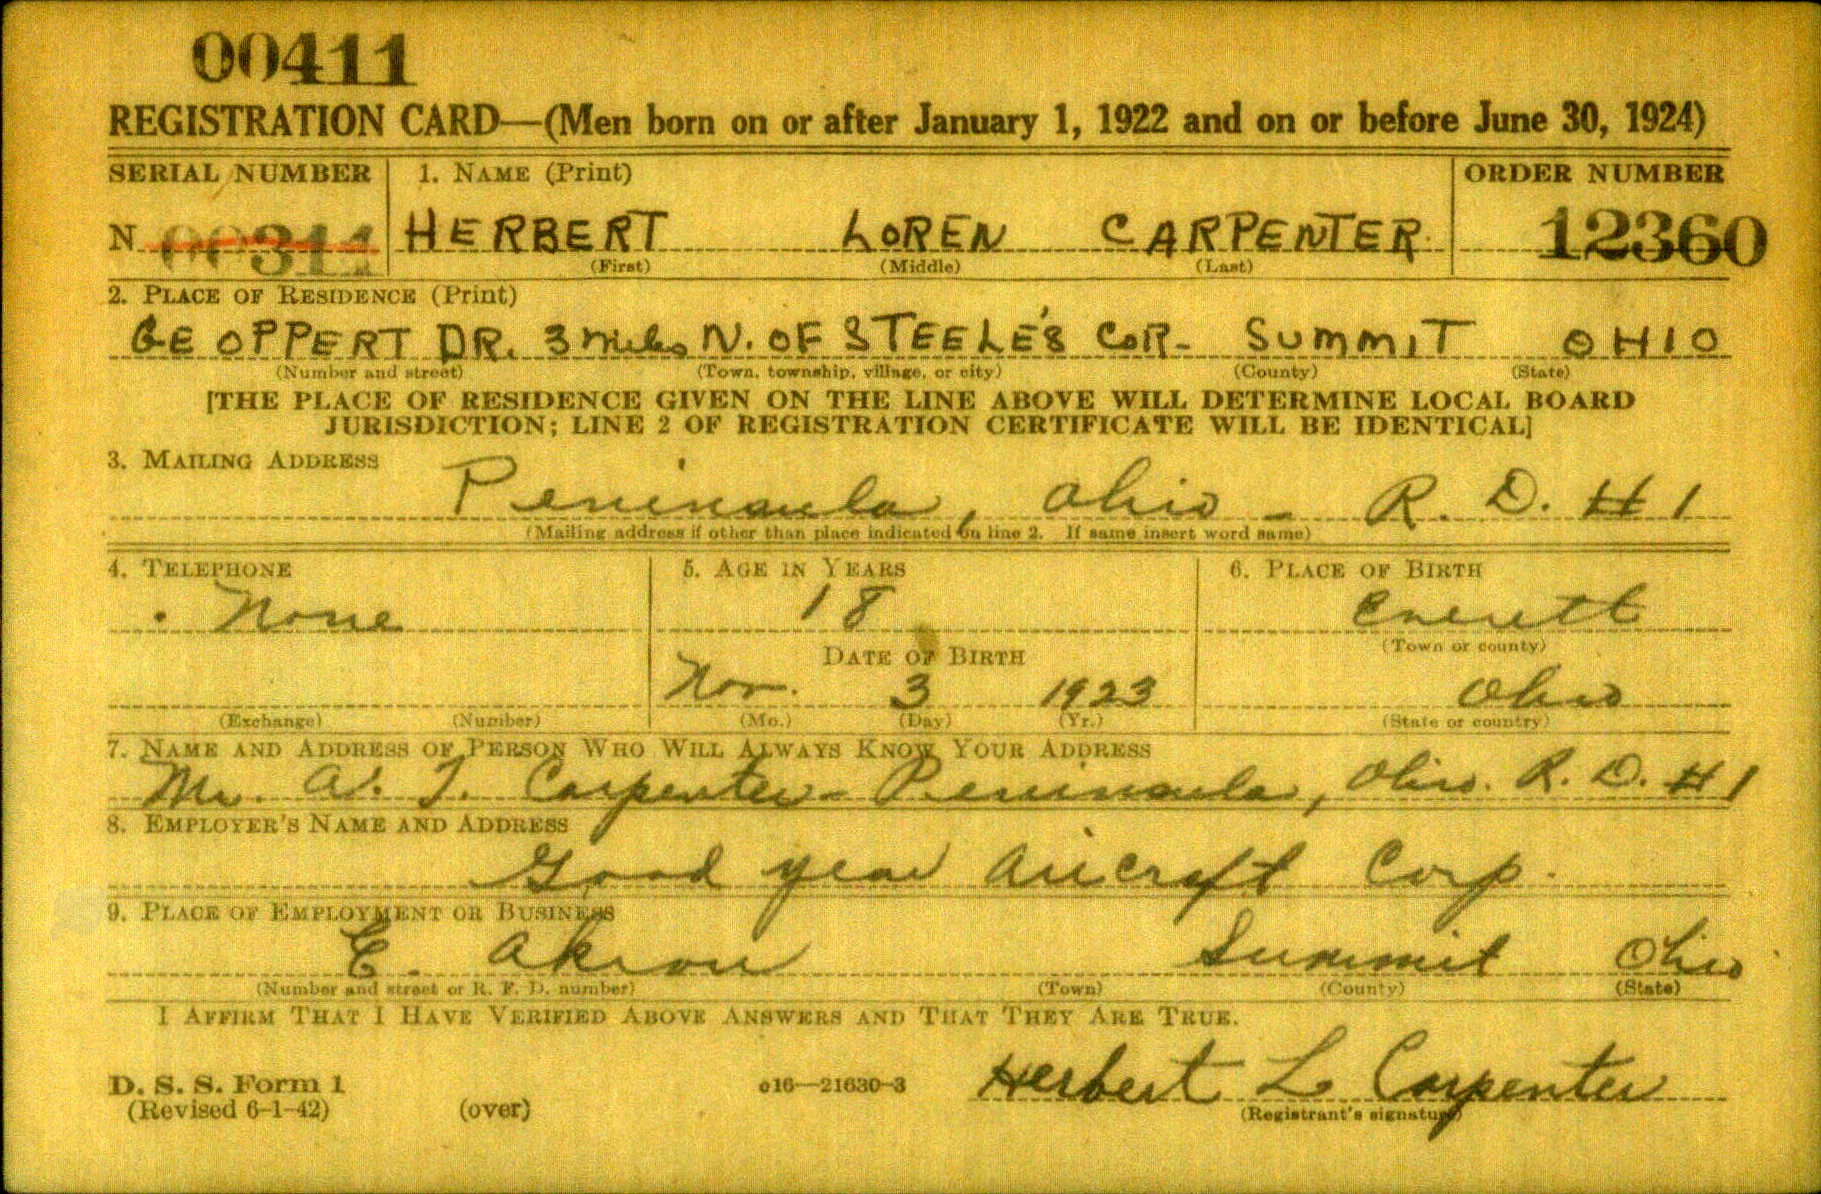 00411
REGISTRATION CARD—(Men born on or after January 1, 1922 and on or before June 30, 1924)
SERIAL NUMBER 1. NAME (Print) ORDER NUMBER
N 00311 HERBERT LOREN CARPENTER 12360
(First) (Middle) (Last)
2. PLACE OF RESIDENCE (Print)
GEOPPERT DR. 3 miles N. OF STEELE'S COR- SUMMIT OHIO
(Number and street) (Town, township, village, or city) (County) (State)
[THE PLACE OF RESIDENCE GIVEN ON THE LINE ABOVE WILL DETERMINE LOCAL BOARD
JURISDICTION; LINE 2 OF REGISTRATION CERTIFICATE WILL BE IDENTICAL]
3. MAILING ADDRESS
Peninsula, Ohio - R. D. #1
(Mailing address if other than place indicated on line 2. If same insert word same)
4. TELEPHONE 5. AGE IN YEARS 6. PLACE OF BIRTH
None 18 Everett
(Town or county)
DATE OF BIRTH
Nov. 3 1923 Ohio
(Exchange) (Number) (Mo.) (Day) (Yr.) (State or country)
7. NAME AND ADDRESS OF PERSON WHO WILL ALWAYS KNOW YOUR ADDRESS
Mr. T. Carpenter - Peninsula, Ohio. R. D. #1
8. EMPLOYER'S NAME AND ADDRESS
Good year Aircraft Corp.
9. PLACE OF EMPLOYMENT OR BUSINESS
E. Akron Summit Ohio
(Number and street or R. F. D. number) (Town) (County) (State)
I AFFIRM THAT I HAVE VERIFIED ABOVE ANSWERS AND THAT THEY ARE TRUE.
Herbert L Carpenter
D. S. S. Form 1 16—21630-3
(Revised 6-1-42) (over) (Registrant's signature)